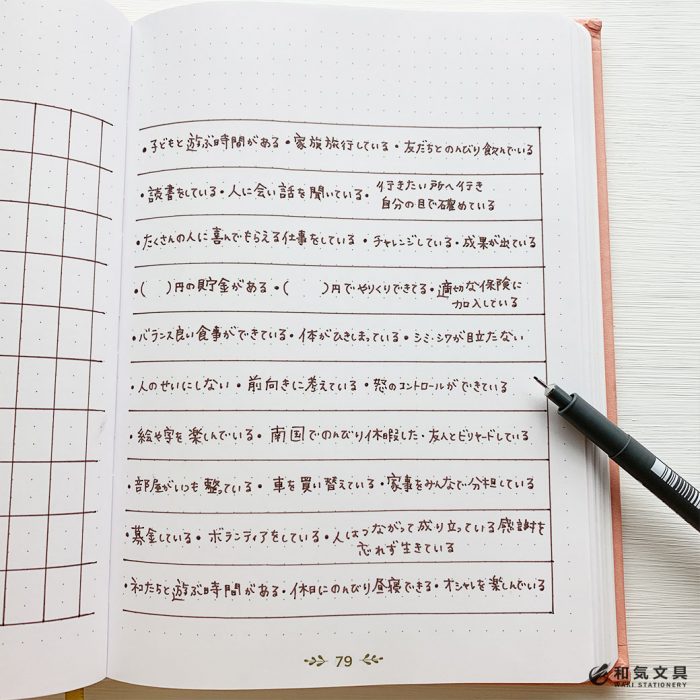 ・子どもと遊ぶ時間がある・家族旅行している・友だちとのんびり飲んでいる
・読書をしている・人に会い話を聞いている・行きたい所へ行き
自分の目で確めている
・たくさんの人に喜んでもらえる仕事をしている・チャレンジしている・成果が出ている
・(　)円の貯金がある・(　)円でやりくりできてる・適切な保険に
加入している
・バランス良い食事ができている・体がひきしまっている・シミ・シワが目立たない
・人のせいにしない・前向きに考えている・怒のコントロールができている
・絵や字を楽しんでいる・南国でのんびり休暇した・友人とビリヤードしている
・部屋がいつも整っている・車を買い替えている・家事をみんなで分担している
・募金している・ボランティアをしている・人はつながって成り立っている感謝を
忘れず生きている
・私たちと遊ぶ時間がある・休日にのんびり昼寝できる・オシャレを楽しんでいる
79
和気文具
WAKI STATIONERY